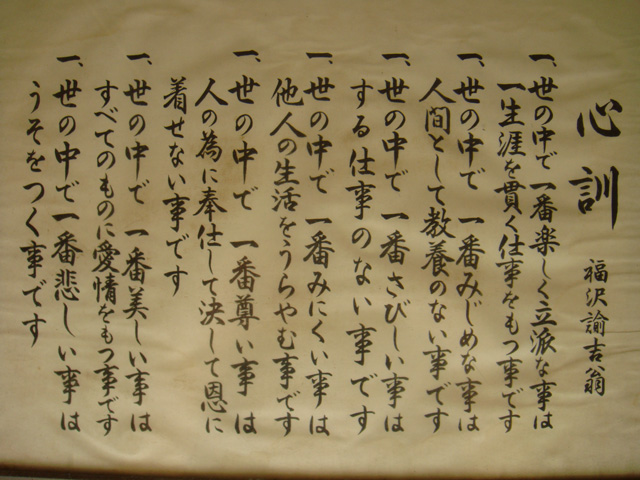 心訓
福沢諭吉翁
一、世の中で一番楽しく立派な事は
一生涯を貫く仕事をもつ事です
一、世の中で一番みじめな事は
人間として教養のない事です
一、世の中で一番さびしい事は
する仕事のない事です
一、世の中で一番みにくい事は
他人の生活をうらやむ事です
一、世の中で一番尊い事は
人の為に奉仕して決して恩に
着せない事です
一、世の中で一番美しい事は
すべてのものに愛情をもつ事です
一、世の中で一番悲しい事は
うそをつく事です